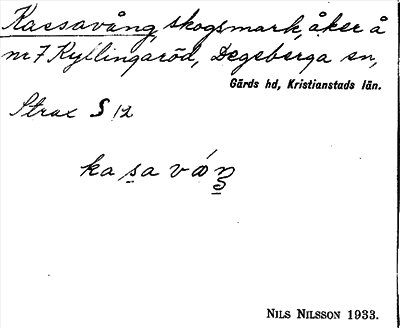 Kassavång, skogsmark, åker å
nr 7 Kyllingaröd, Degeberga sn,
Gärds hd, Kristianstads län.
Strax S 12
kasavåŋ
NILS NILSSON 1933.